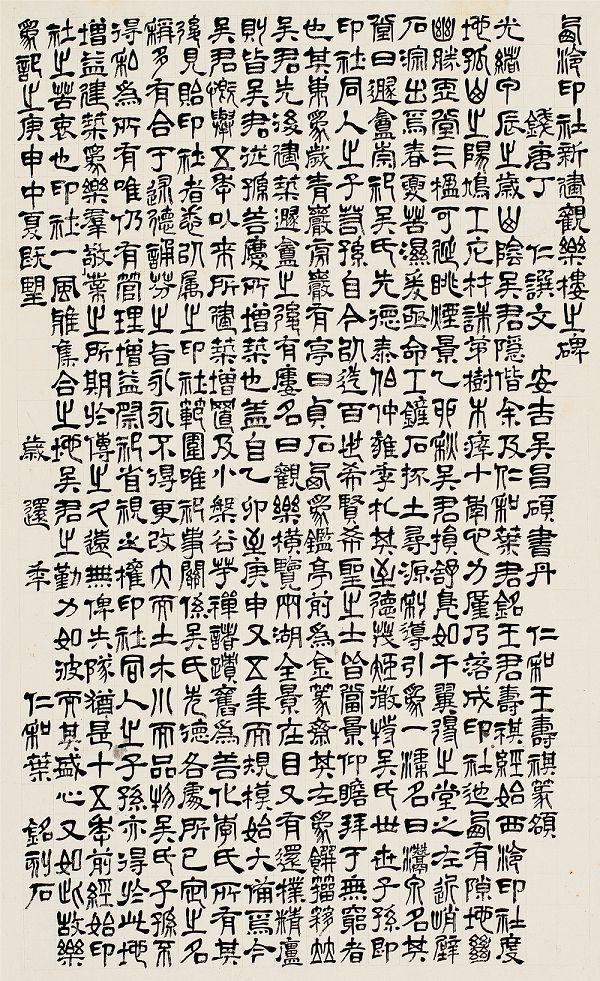 西泠印社新建觀樂樓之碑
錢唐丁 仁譔文 安吉吳昌碩書丹 仁和王壽祺篆額
光緒甲辰之歲山陰吳君隱偕余及仁和葉君銘王君壽祺經始西泠印社度
地孤山之陽鳩工庀材誅茅樹木瘁十年心力廑乃落成印社迤西有隙地
幽勝堂三楹可延眺煙景乙卯秋吳君捐舒鳧如干翼得之堂之左近峭壁
石淙出焉春夏苦濕爰亟命工鏟石抔土尋源利導引為一溝名曰灊泉名其
堂曰遯盦崇祀吳氏先德泰伯仲雍季札其至德茂吳氏世世子孫即
印社同人之子若孫自今以迄百世希賢希聖之士皆當景仰瞻拜于無窮者
也其東為歲青巖巖有亭曰貞石西為鑑亭前為金篆齋其左為
吳君先後建築遯盦之後有廔名曰觀樂橫覽兩湖全景在目又有還樸精廬
則皆吳君從孫善慶所增築也蓋自乙卯至庚申又五年而規模始大備焉今
吳君慨舉五年以來所建築增置及小盤谷芋禪諸蹟舊為善化李氏所有其
後見貽印社者悉以屬之印社範圍唯祀事關係吳氏先德各處所已定之名
稱多有合于述德誦芬之旨永永不得更改大而土木小而品物吳氏子孫不
得私為所有唯仍有管理增益祭祀省視之權印社同人之子孫亦得於此地
增益建築為樂群敬業之所期於傳之久遠無俾失隊猶是十五年前經始印
社之苦衷也印社一風雅集合之地吳君之勤力如彼而其盛心又如此故樂
為記之庚申中夏既望 歲 還 年 仁和葉 銘刻石